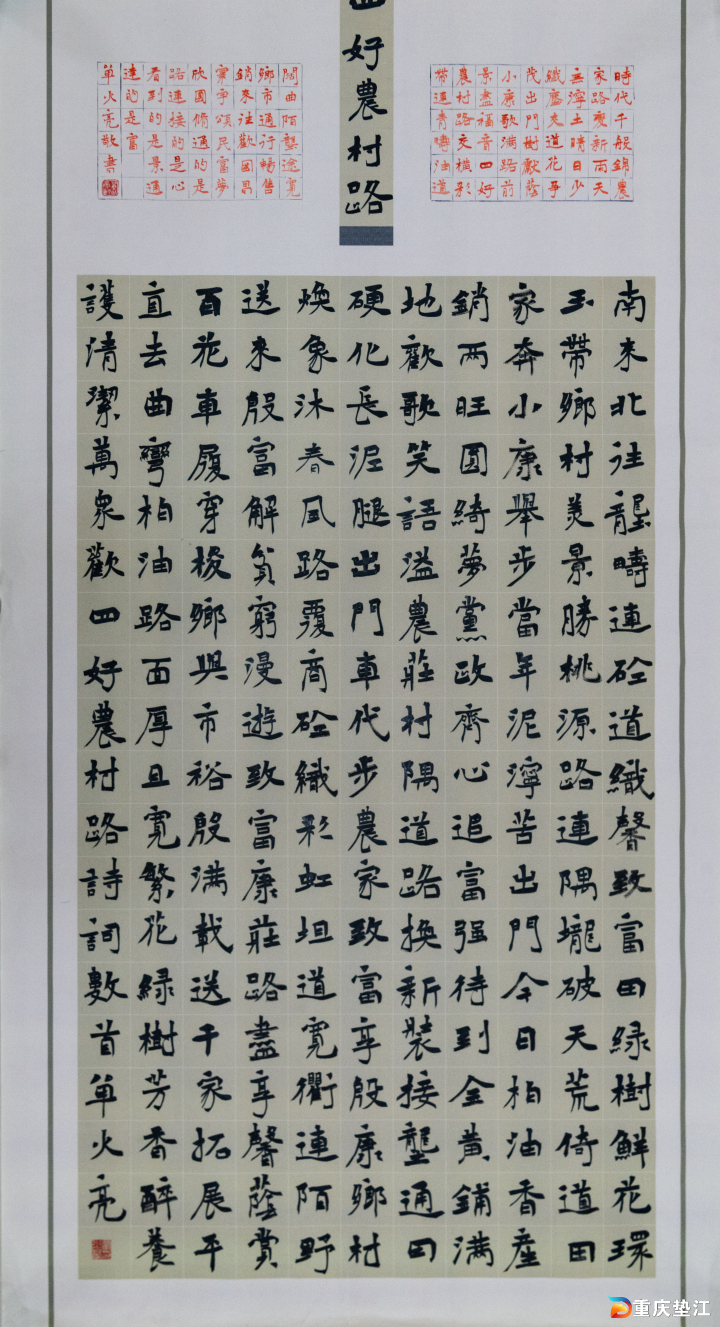 四好農村路
時代千般錦農
家路變新雨天
無濘土晴日少
纖塵夾道花爭
茂出門樹獻蔭
小康歌滿路前
景盡福音四好
農村路交橫彩
帶連青疇油道
闊曲陌壟途寬
鄉市通行暢售
銷來往歡國昌
業爭頌民富夢
欣圓脩通的是
路連接的是心
看到的是景通
達的是富
單火亮敬書
南來北往壟疇連砼道織馨致富田綠樹鮮花環
玉帶鄉村美景勝桃源路連隅壠破天荒倚道田
家奔小康舉步當年泥濘苦出門今日柏油香產
銷兩旺圓綺夢黨政齊心追富强待到金黃鋪滿
地歡歌笑語溢農莊村隅道路換新裝接壟通田
硬化長泥腿出門車代步農家致富享殷康鄉村
煥象沐春風路覆商砼織彩虹坦道寬衢連陌野
送來殷富解貧窮漫遊致富康莊路盡享馨蔭賞
百花車履穿梭鄉與市裕殷滿載送千家拓展平
直去曲彎柏油路面厚且寬繁花綠樹芳香醉養
護清潔萬衆歡四好農村路詩詞數首單火亮
重庆垫江